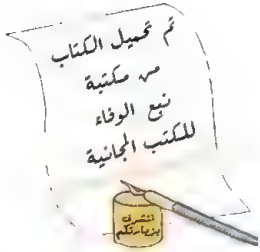 تم تحميل الكتاب
من مكتبة
نبع الوفاء
للكتب المجانية
نتشرف
بزيارتكم